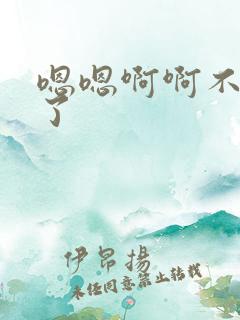 嗯嗯啊啊不
了
伊昂揚
未经同意禁止转载